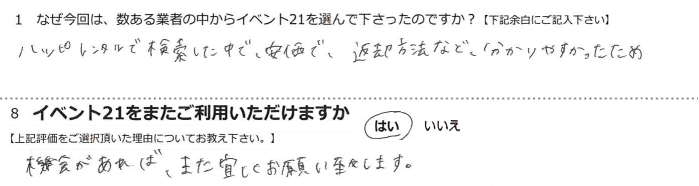 1 なぜ今回は、数ある業者の中からイベント21を選んで下さったのですか？【下記余白にご記入下さい】
ハッピレンタルで検索した中で、安価で、返却方法など、分かりやすかったため
8 イベント21をまたご利用いただけますか
はい いいえ
【上記評価をご選択頂いた理由についてお教え下さい。】
機会があれば、また宜しくお願い致します。